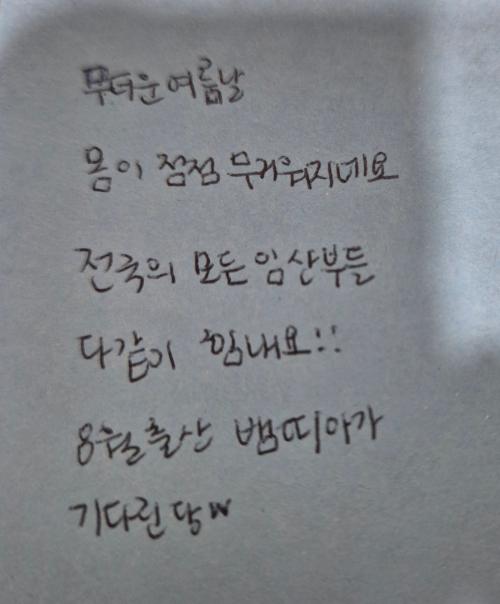 무더운 여름날
몸이 점점 무거워지네요
전국의 모든 임산부들
다같이 힘내요!!
8월출산 뱀띠아가
기다린당w